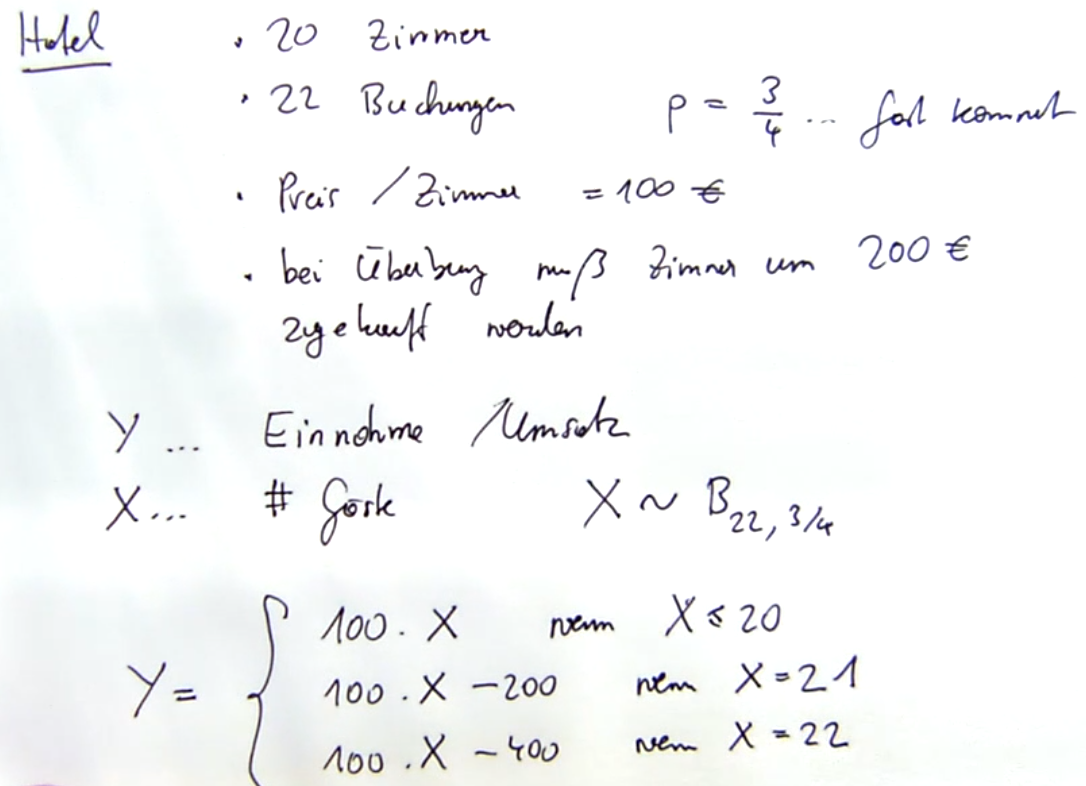 Hotel · 20 Zimmer
· 22 Buchungen p = 3/4 ... Gast kommt
· Preis / Zimmer = 100 €
· bei muß Zimmer um 200 €
zugekauft werden
Y ... Einnahme / Umsatz
X ... # Gäste X ~ B_{22, 3/4}
Y = { 100 . X wenn X ≤ 20
100 . X - 200 wenn X = 21
100 . X - 400 wenn X = 22